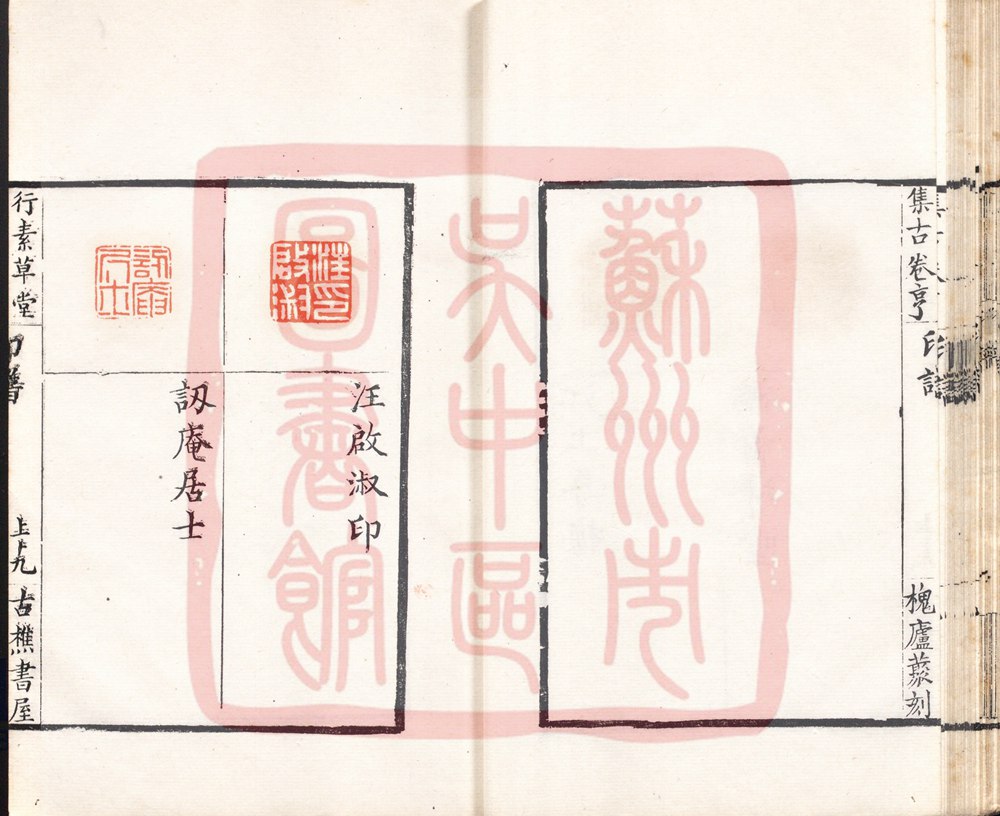 集古卷亨
印譜
槐廬叢刻
汪啟淑印
汪啟淑印
訒庵居士
訒庵居士
行素草堂
印譜
古樵書屋
蘇州市
吳中區
圖書館